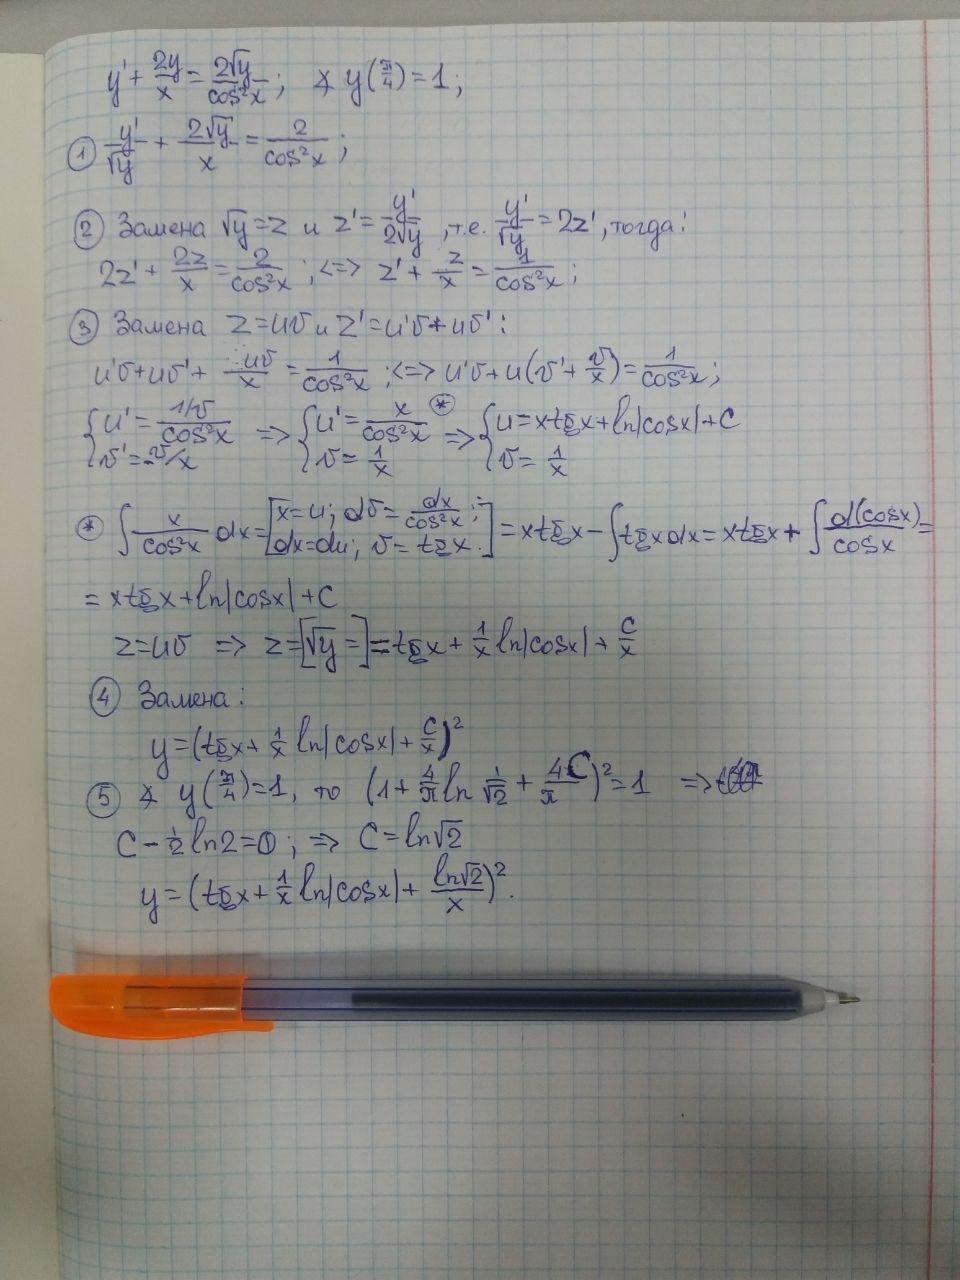 y' + 2y/x = 2√y/cos²x ; ∡ y(π/4) = 1 ;
① y'/√y + 2√y/x = 2/cos²x ;
② Замена √y = z и z' = y'/2√y , т.е. y'/√y = 2z' , тогда:
2z' + 2z/x = 2/cos²x ; <=> z' + z/x = 1/cos²x ;
③ Замена z = uv и z' = u'v + uv' :
u'v + uv' + uv/x = 1/cos²x ; <=> u'v + u(v' + v/x) = 1/cos²x ;
{ u' = 1/v/cos²x => { u' = x/cos²x ⊛ => { u = xtgx + ln|cosx| + C
v' = -v/x v = 1/x v = 1/x
⊛ ∫ x/cos²x dx = [ x = u ; dv = dx/cos²x ; dx = du ; v = tgx. ] = xtgx - ∫tgxdx = xtgx + ∫ d(cosx)/cosx =
= xtgx + ln|cosx| + C
z = uv => z = [√y =] = tgx + 1/x ln|cosx| + C/x
④ Замена:
y = (tgx + 1/x ln|cosx| + C/x)²
⑤ ∡ y(π/4) = 1, то (1 + 4/π ln 1/√2 + 4C/π)² = 1 =>
C - 1/2 ln2 = 0 ; => C = ln√2
y = (tgx + 1/x ln|cosx| + ln√2/x)².